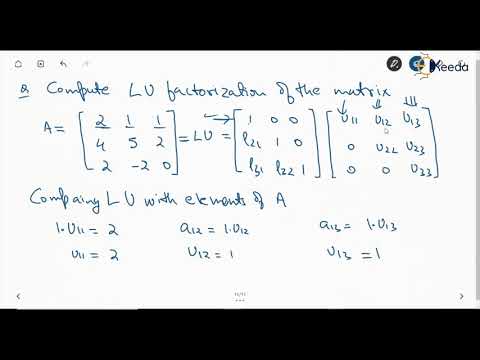 Keeda
Q Compute LU factorization of the matrix
A = [2 1 1; 4 5 2; 2 -2 0] = LU = [1 0 0; l21 1 0; l31 l22 1] [U11 U12 U13; 0 U22 U23; 0 0 U33]
Compaing LU with elements of A
1·U11 = 2 a12 = 1·U12 a13 = 1·U13
U11 = 2 U12 = 1 U13 = 1